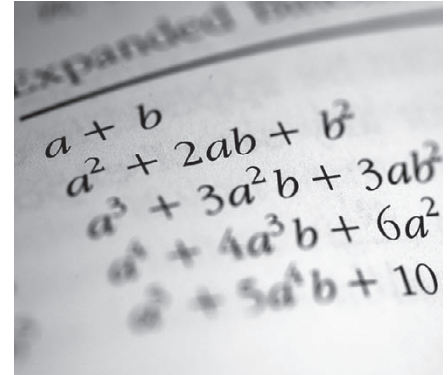 Expanded
a + b
a² + 2ab + b²
a³ + 3a²b + 3ab²
a⁴ + 4a³b + 6a²
a⁵ + 5a⁴b + 10